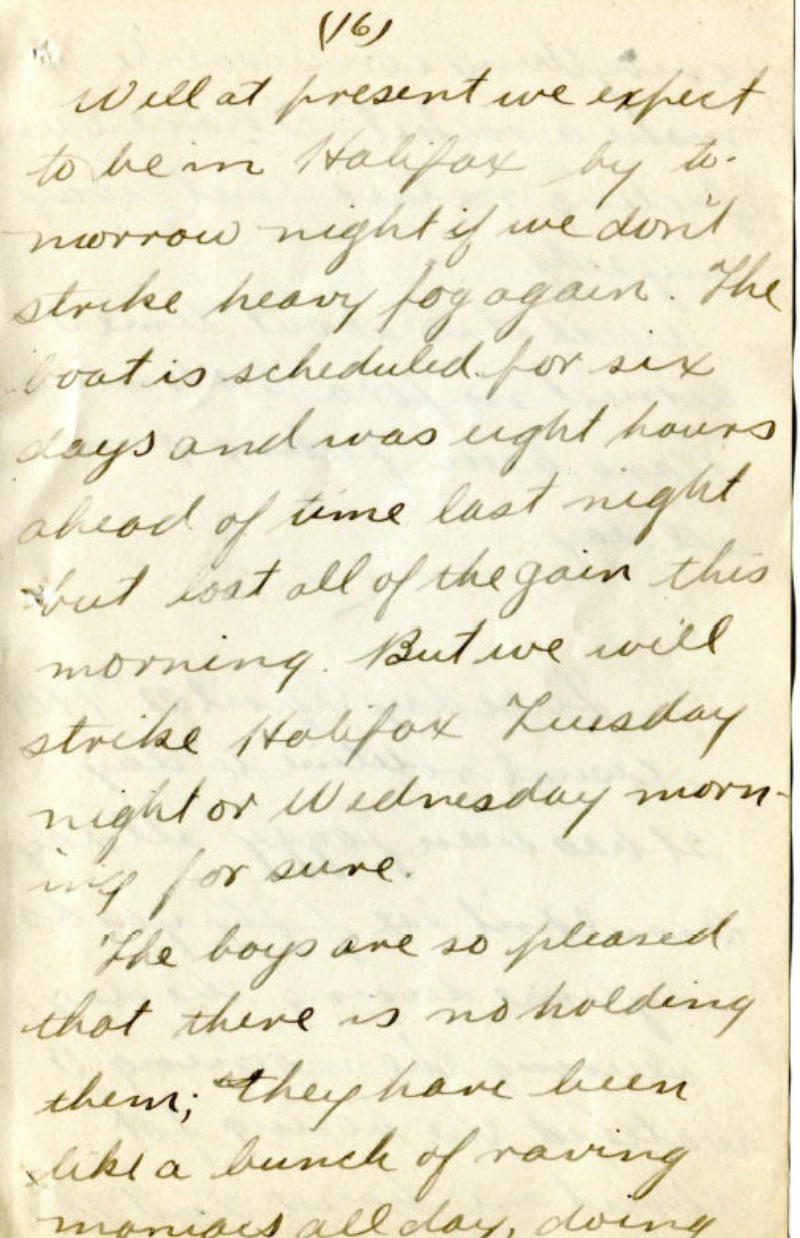 (16)
Well at present we expect
to be in Halifax by to-
morrow night if we don't
strike heavy fog again. The
boat is scheduled for six
days and was eight hours
ahead of time last night
but lost all of the gain this
morning. But we will
strike Halifax Tuesday
night or Wednesday morn-
ing for sure.
The boys are so pleased
that there is no holding
them; they have been
like a bunch of raving
maniacs all day, doing